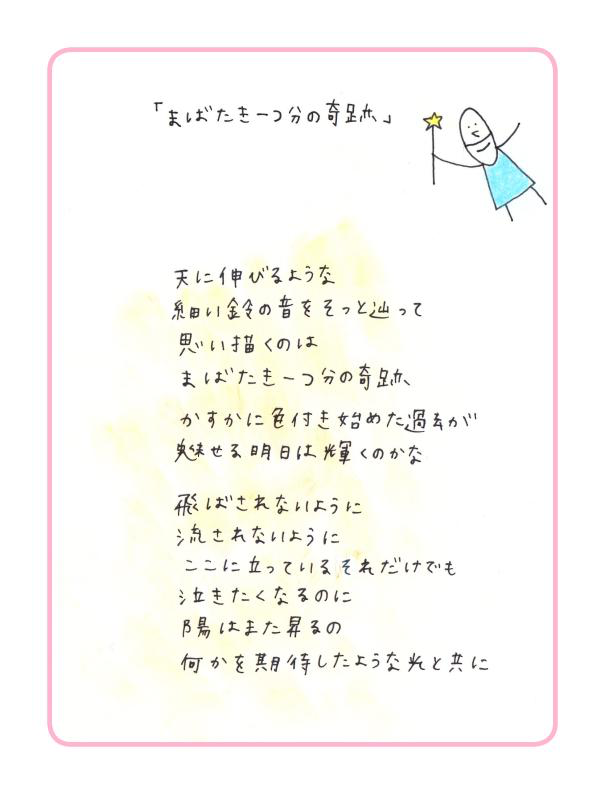 「まばたき一つ分の奇跡」
天に伸びるような
細い鈴の音をそっと辿って
思い描くのは
まばたき一つ分の奇跡
かすかに色付き始めた過去が
魅せる明日は輝くのかな
飛ばされないように
流されないように
ここに立っているそれだけでも
泣きたくなるのに
陽はまた昇るの
何かを期待したような光と共に